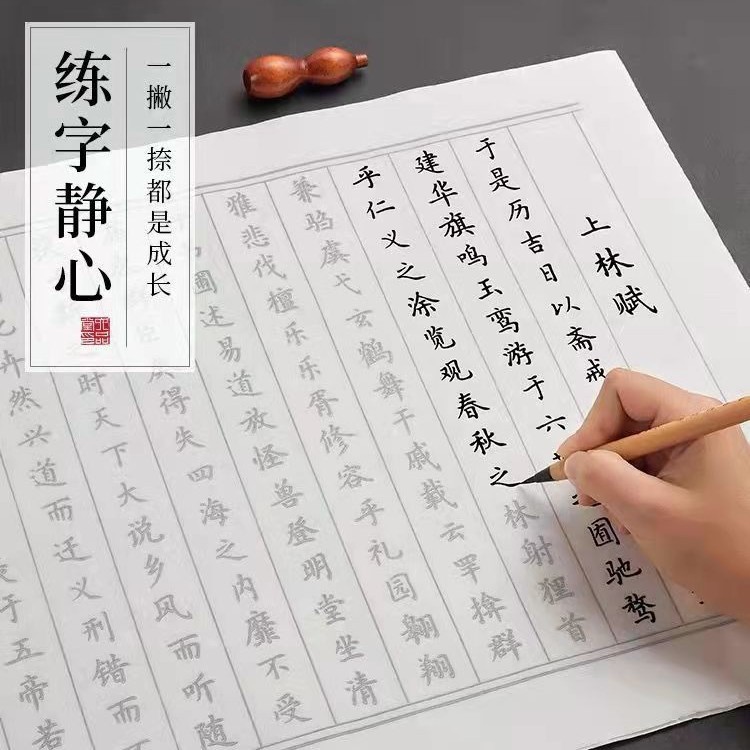 练字静心
一撇一捺都是成长
上林赋
于是历吉日以斋戒
建华旗鸣玉鸾游于六 囿驰骛
乎仁义之涂览观春秋之林射狸首
兼驺虞弋玄鹤舞干戚载云罕揜群
雅悲伐檀乐乐胥修容乎礼园翱翔
圃述易道放怪兽登明堂坐清
臣奏得失四海之内靡不受
之时天下大说乡风而听随
卉然兴道而迁义刑错而
于五帝若